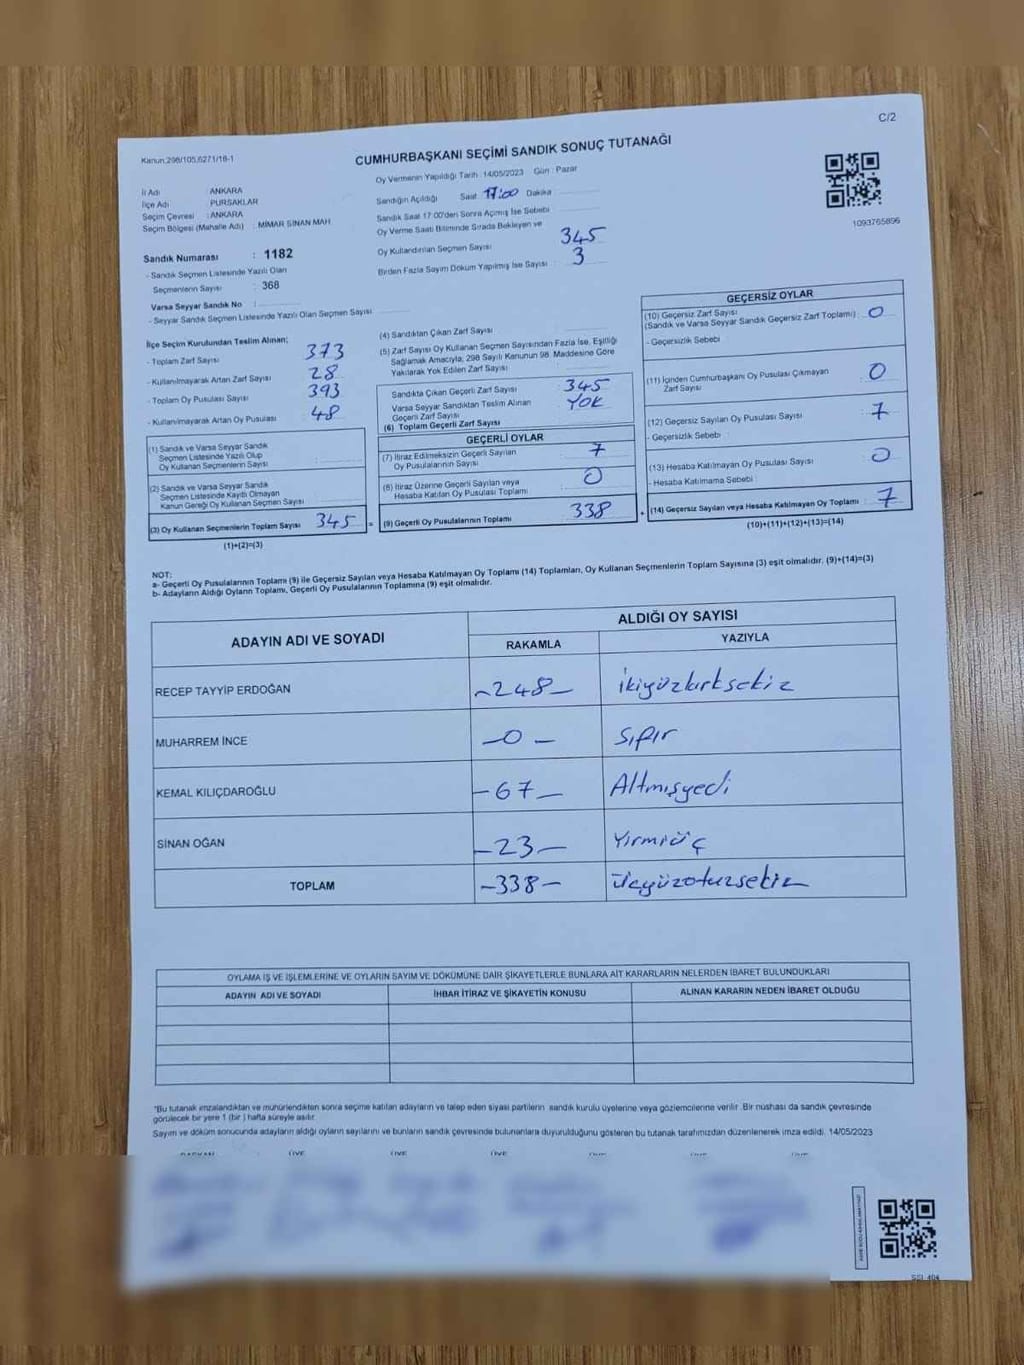 C/2
Kanun,298/105,6271/18-1
CUMHURBAŞKANI SEÇİMİ SANDIK SONUÇ TUTANAĞI
Oy Vermenin Yapıldığı Tarih : 14/05/2023 Gün : Pazar
İl Adı ANKARA
İlçe Adı PURSAKLAR
Seçim Çevresi : ANKARA
Seçim Bölgesi (Mahalle Adı) : MİMAR SİNAN MAH.
Sandığın Açıldığı Saat 17:00 Dakika
Sandık Saat 17:00'den Sonra Açılmış İse Sebebi
Oy Verme Saati Bitiminde Sırada Bekleyen ve
Oy Kullandırılan Seçmen Sayısı 345
Birden Fazla Sayım Döküm Yapılmış İse Sayısı : 3
1093765896
Sandık Numarası : 1182
- Sandık Seçmen Listesinde Yazılı Olan
Seçmenlerin Sayısı : 368
Varsa Seyyar Sandık No :
- Seyyar Sandık Seçmen Listesinde Yazılı Olan Seçmen Sayısı
İlçe Seçim Kurulundan Teslim Alınan;
- Toplam Zarf Sayısı 373
- Kullanılmayarak Artan Zarf Sayısı 28
- Toplam Oy Pusulası Sayısı 393
- Kullanılmayarak Artan Oy Pusulası 48
(1) Sandık ve Varsa Seyyar Sandık
Seçmen Listesinde Yazılı Olup
Oy Kullanan Seçmenlerin Sayısı
(2) Sandık ve Varsa Seyyar Sandık
Seçmen Listesinde Kayıtlı Olmayan
Kanun Gereği Oy Kullanan Seçmen Sayısı
(3) Oy Kullanan Seçmenlerin Toplam Sayısı 345 =
(1)+(2)=(3)
(4) Sandıktan Çıkan Zarf Sayısı
(5) Zarf Sayısı Oy Kullanan Seçmen Sayısından Fazla İse, Eşitliği
Sağlamak Amacıyla, 298 Sayılı Kanunun 98. Maddesine Göre
Yakılarak Yok Edilen Zarf Sayısı
Sandıkta Çıkan Geçerli Zarf Sayısı 345
Varsa Seyyar Sandıktan Teslim Alınan YOK
Geçerli Zarf Sayısı
(6) Toplam Geçerli Zarf Sayısı
GEÇERLİ OYLAR
(7) İtiraz Edilmeksizin Geçerli Sayılan 7
Oy Pusulalarının Sayısı
(8) İtiraz Üzerine Geçerli Sayılan veya 0
Hesaba Katılan Oy Pusulası Toplamı
(9) Geçerli Oy Pusulalarının Toplamı 338 +
GEÇERSİZ OYLAR
(10) Geçersiz Zarf Sayısı
(Sandık ve Varsa Seyyar Sandık Geçersiz Zarf Toplamı) : 0
- Geçersizlik Sebebi
(11) İçinden Cumhurbaşkanı Oy Pusulası Çıkmayan : 0
Zarf Sayısı
(12) Geçersiz Sayılan Oy Pusulası Sayısı : 7
- Geçersizlik Sebebi :
(13) Hesaba Katılmayan Oy Pusulası Sayısı : 0
- Hesaba Katılmama Sebebi :
(14) Geçersiz Sayılan veya Hesaba Katılmayan Oy Toplamı : 7
(10)+(11)+(12)+(13)=(14)
NOT:
a- Geçerli Oy Pusulalarının Toplamı (9) ile Geçersiz Sayılan veya Hesaba Katılmayan Oy Toplamı (14) Toplamları, Oy Kullanan Seçmenlerin Toplam Sayısına (3) eşit olmalıdır. (9)+(14)=(3)
b- Adayların Aldığı Oyların Toplamı, Geçerli Oy Pusulalarının Toplamına (9) eşit olmalıdır.
ADAYIN ADI VE SOYADI ALDIĞI OY SAYISI
RAKAMLA YAZIYLA
RECEP TAYYİP ERDOĞAN -248- İkiyüzkırksekiz
MUHARREM İNCE -0- Sıfır
KEMAL KILIÇDAROĞLU -67- Altmışyedi
SİNAN OĞAN -23- Yirmiüç
TOPLAM -338- üçyüzotuzsekiz
OYLAMA İŞ VE İŞLEMLERİNE VE OYLARIN SAYIM VE DÖKÜMÜNE DAİR ŞİKAYETLERLE BUNLARA AİT KARARLARIN NELERDEN İBARET BULUNDUKLARI
ADAYIN ADI VE SOYADI İHBAR İTİRAZ VE ŞİKAYETİN KONUSU ALINAN KARARIN NEDEN İBARET OLDUĞU
*Bu tutanak imzalandıktan ve mühürlendikten sonra seçime katılan adayların ve talep eden siyasi partilerin sandık kurulu üyelerine veya gözlemcilerine verilir. Bir nüshası da sandık çevresinde
görülecek bir yere 1 (bir ) hafta süreyle asılır.
Sayım ve döküm sonucunda adayların aldığı oyların sayılarını ve bunların sandık çevresinde bulunanlara duyurulduğunu gösteren bu tutanak tarafımızdan düzenlenerek imza edildi. 14/05/2023